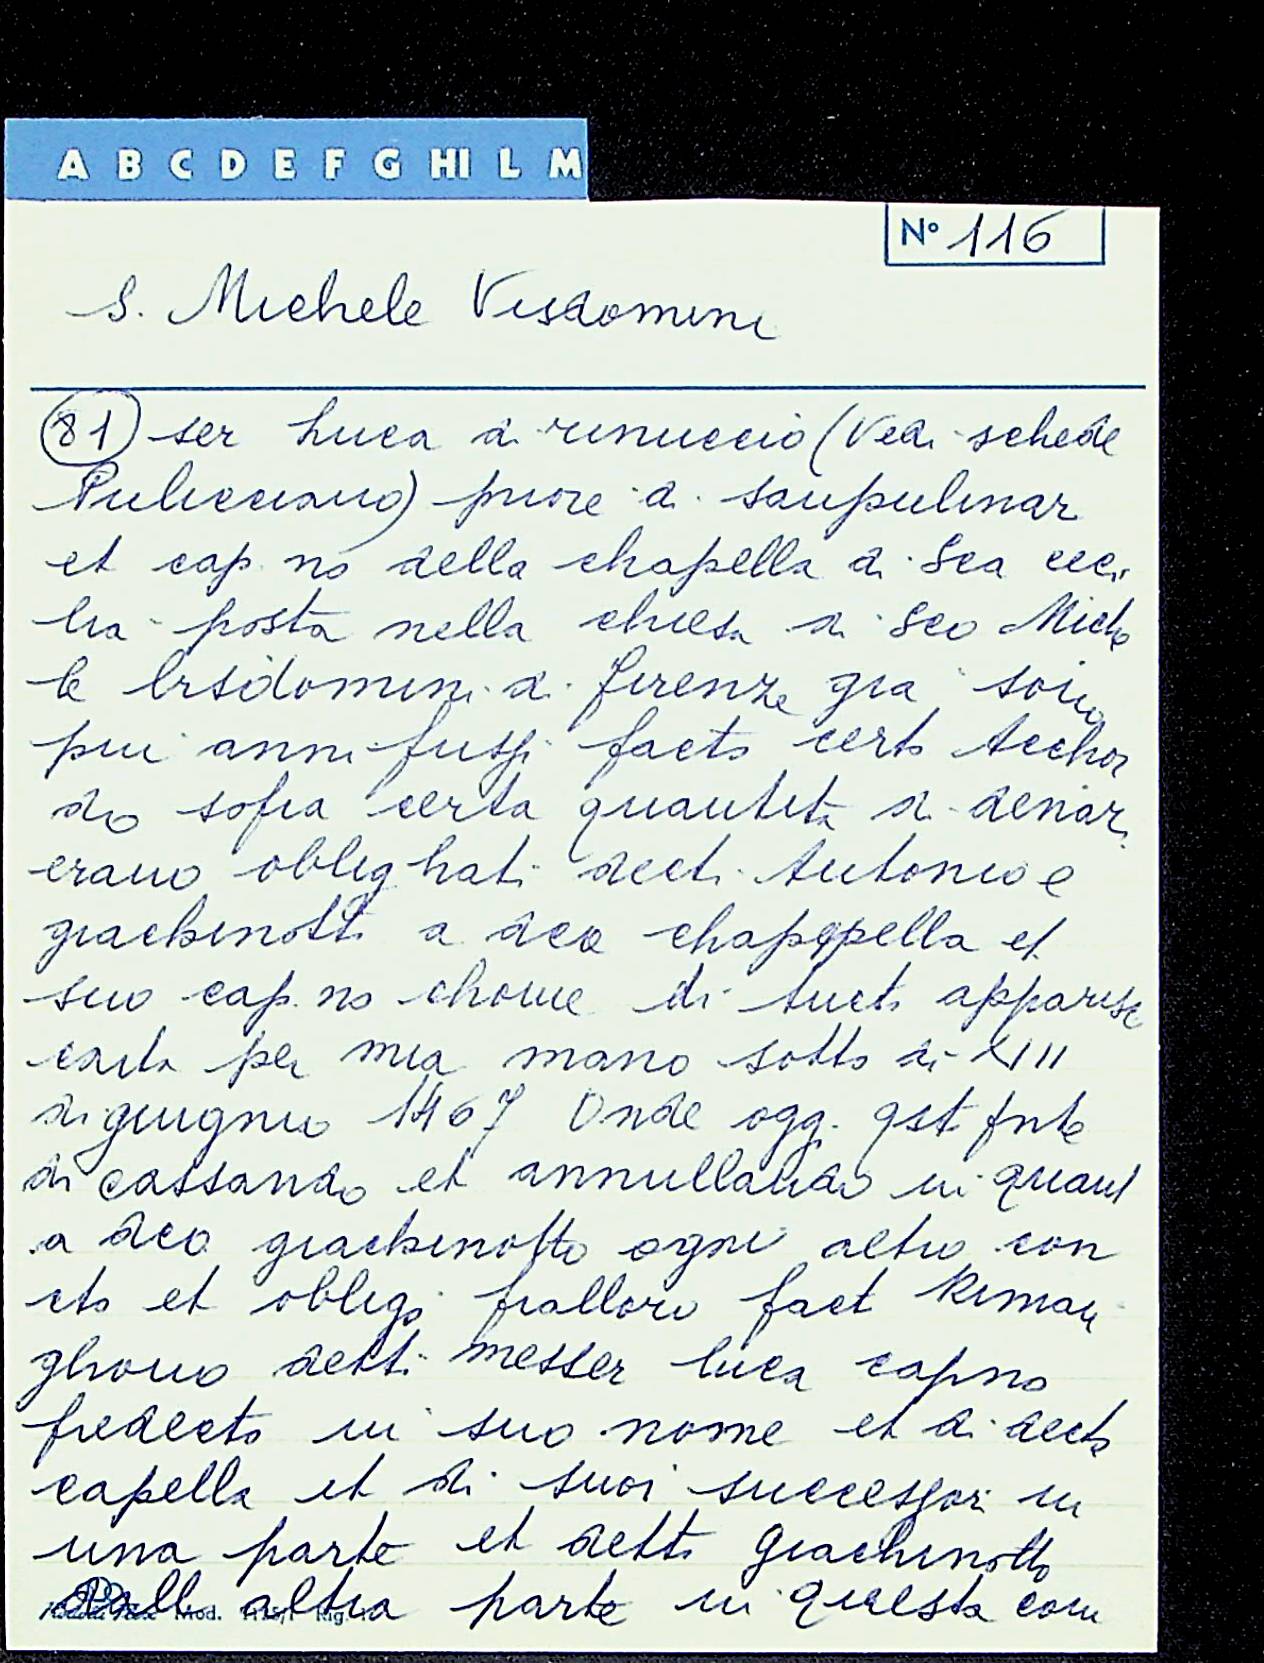 A B C D E F G HI L M
N° 116
S. Michele Visdomini
81) ser Luca di rinuccio (Vedi schede
Pulicciano) priore di sanpulinar
et cap. no della chapella di Sca ceci
lia posta nella chiesa di Sco Miche
le bisdomini di firenze gia sono
piu anni fussi facto certo Acchor
do sopra certa quantita di denari
erano oblighati decti Antonio e
giachinotti a dca chappella et
suo cap. no chome di tucti apparisc
carta per mia mano sotto di XIII
di giugnio 1467 Onde oggi qst
di cassando et annullando in quant
a dco giachinotto ogni altro con
cto et obligo fralloro fact Riman
ghono detti messer luca capno
predecto in suo nome et di decta
capella et di suoi successori in
una parte et detto Giachinotto
dall altra parte in questa con
Mod.